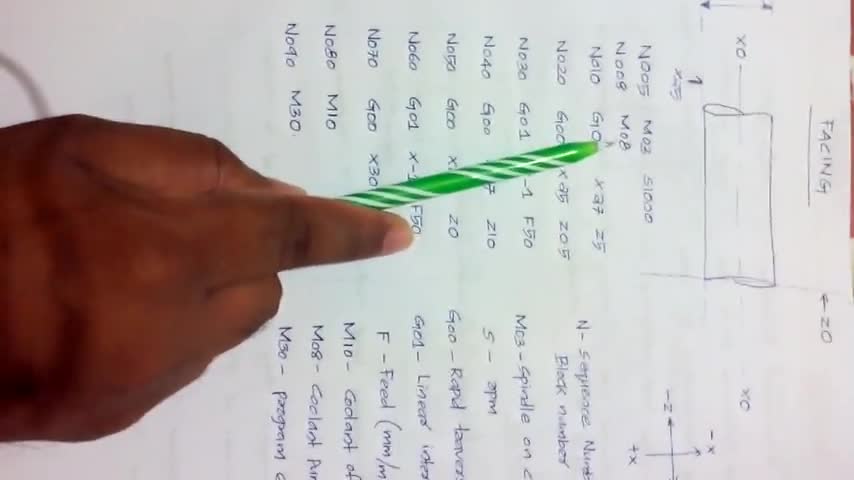 FACING
← Z0
X0
X0
1
X25
-X
-Z
+X
N005 M03 S1000
N008 M08
N010 G0 X27 Z5
N020 G00 X25 Z0.5
N030 G01 -1 F50
N040 G00 7 Z10
N050 G00 X Z0
N060 G01 X-1 F50
N070 G00 X30
N080 M10
N090 M30
N- Sequence Num
Block number
M03 - Spindle on
S - rpm
G00 - Rapid
G01 - Linear inter
F - Feed (mm/m
M10 - Coolant of
M08 - Coolant Pum
M30 - Program